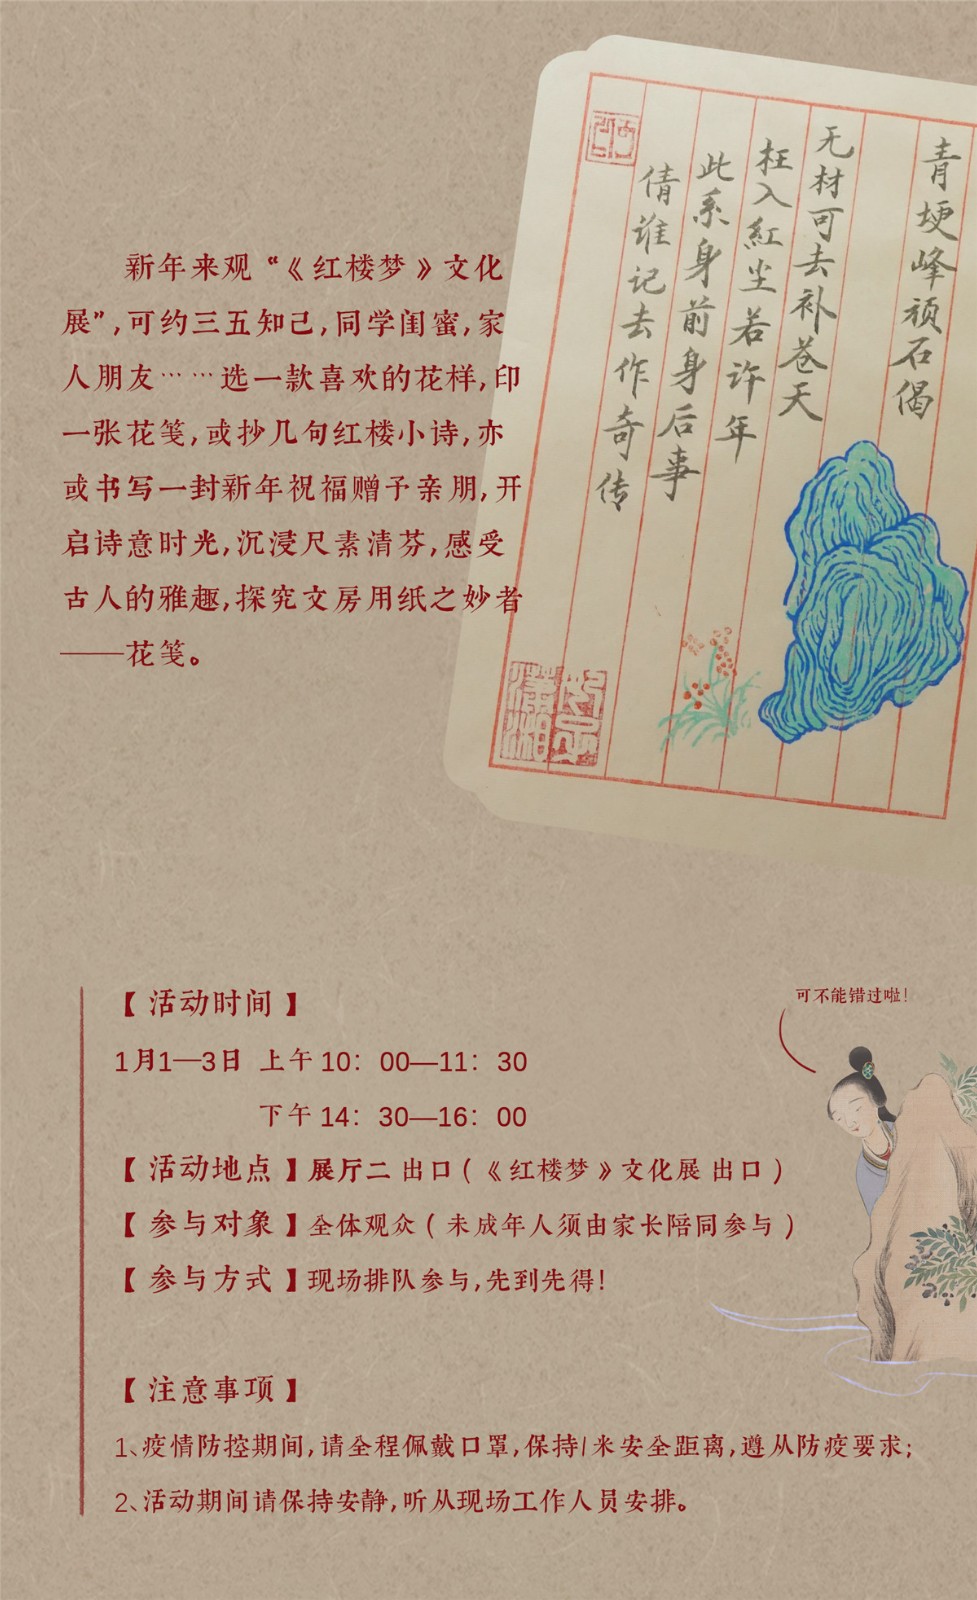 青埂峰顽石偈
无材可去补苍天
枉入紅尘若许年
此系身前身后事
倩谁记去作奇传
新年来观“《红楼梦》文化
展”,可约三五知己,同学闺蜜,家
人朋友……选一款喜欢的花样,印
一张花笺,或抄几句红楼小诗,亦
或书写一封新年祝福赠予亲朋,开
启诗意时光,沉浸尺素清芬,感受
古人的雅趣,探究文房用纸之妙者
——花笺。
可不能错过啦!
【活动时间】
1月1—3日 上午10：00—11：30
下午14：30—16：00
【活动地点】展厅二 出口(《红楼梦》文化展 出口)
【参与对象】全体观众(未成年人须由家长陪同参与)
【参与方式】现场排队参与,先到先得!
【注意事项】
1、疫情防控期间,请全程佩戴口罩,保持1米安全距离,遵从防疫要求;
2、活动期间请保持安静,听从现场工作人员安排。